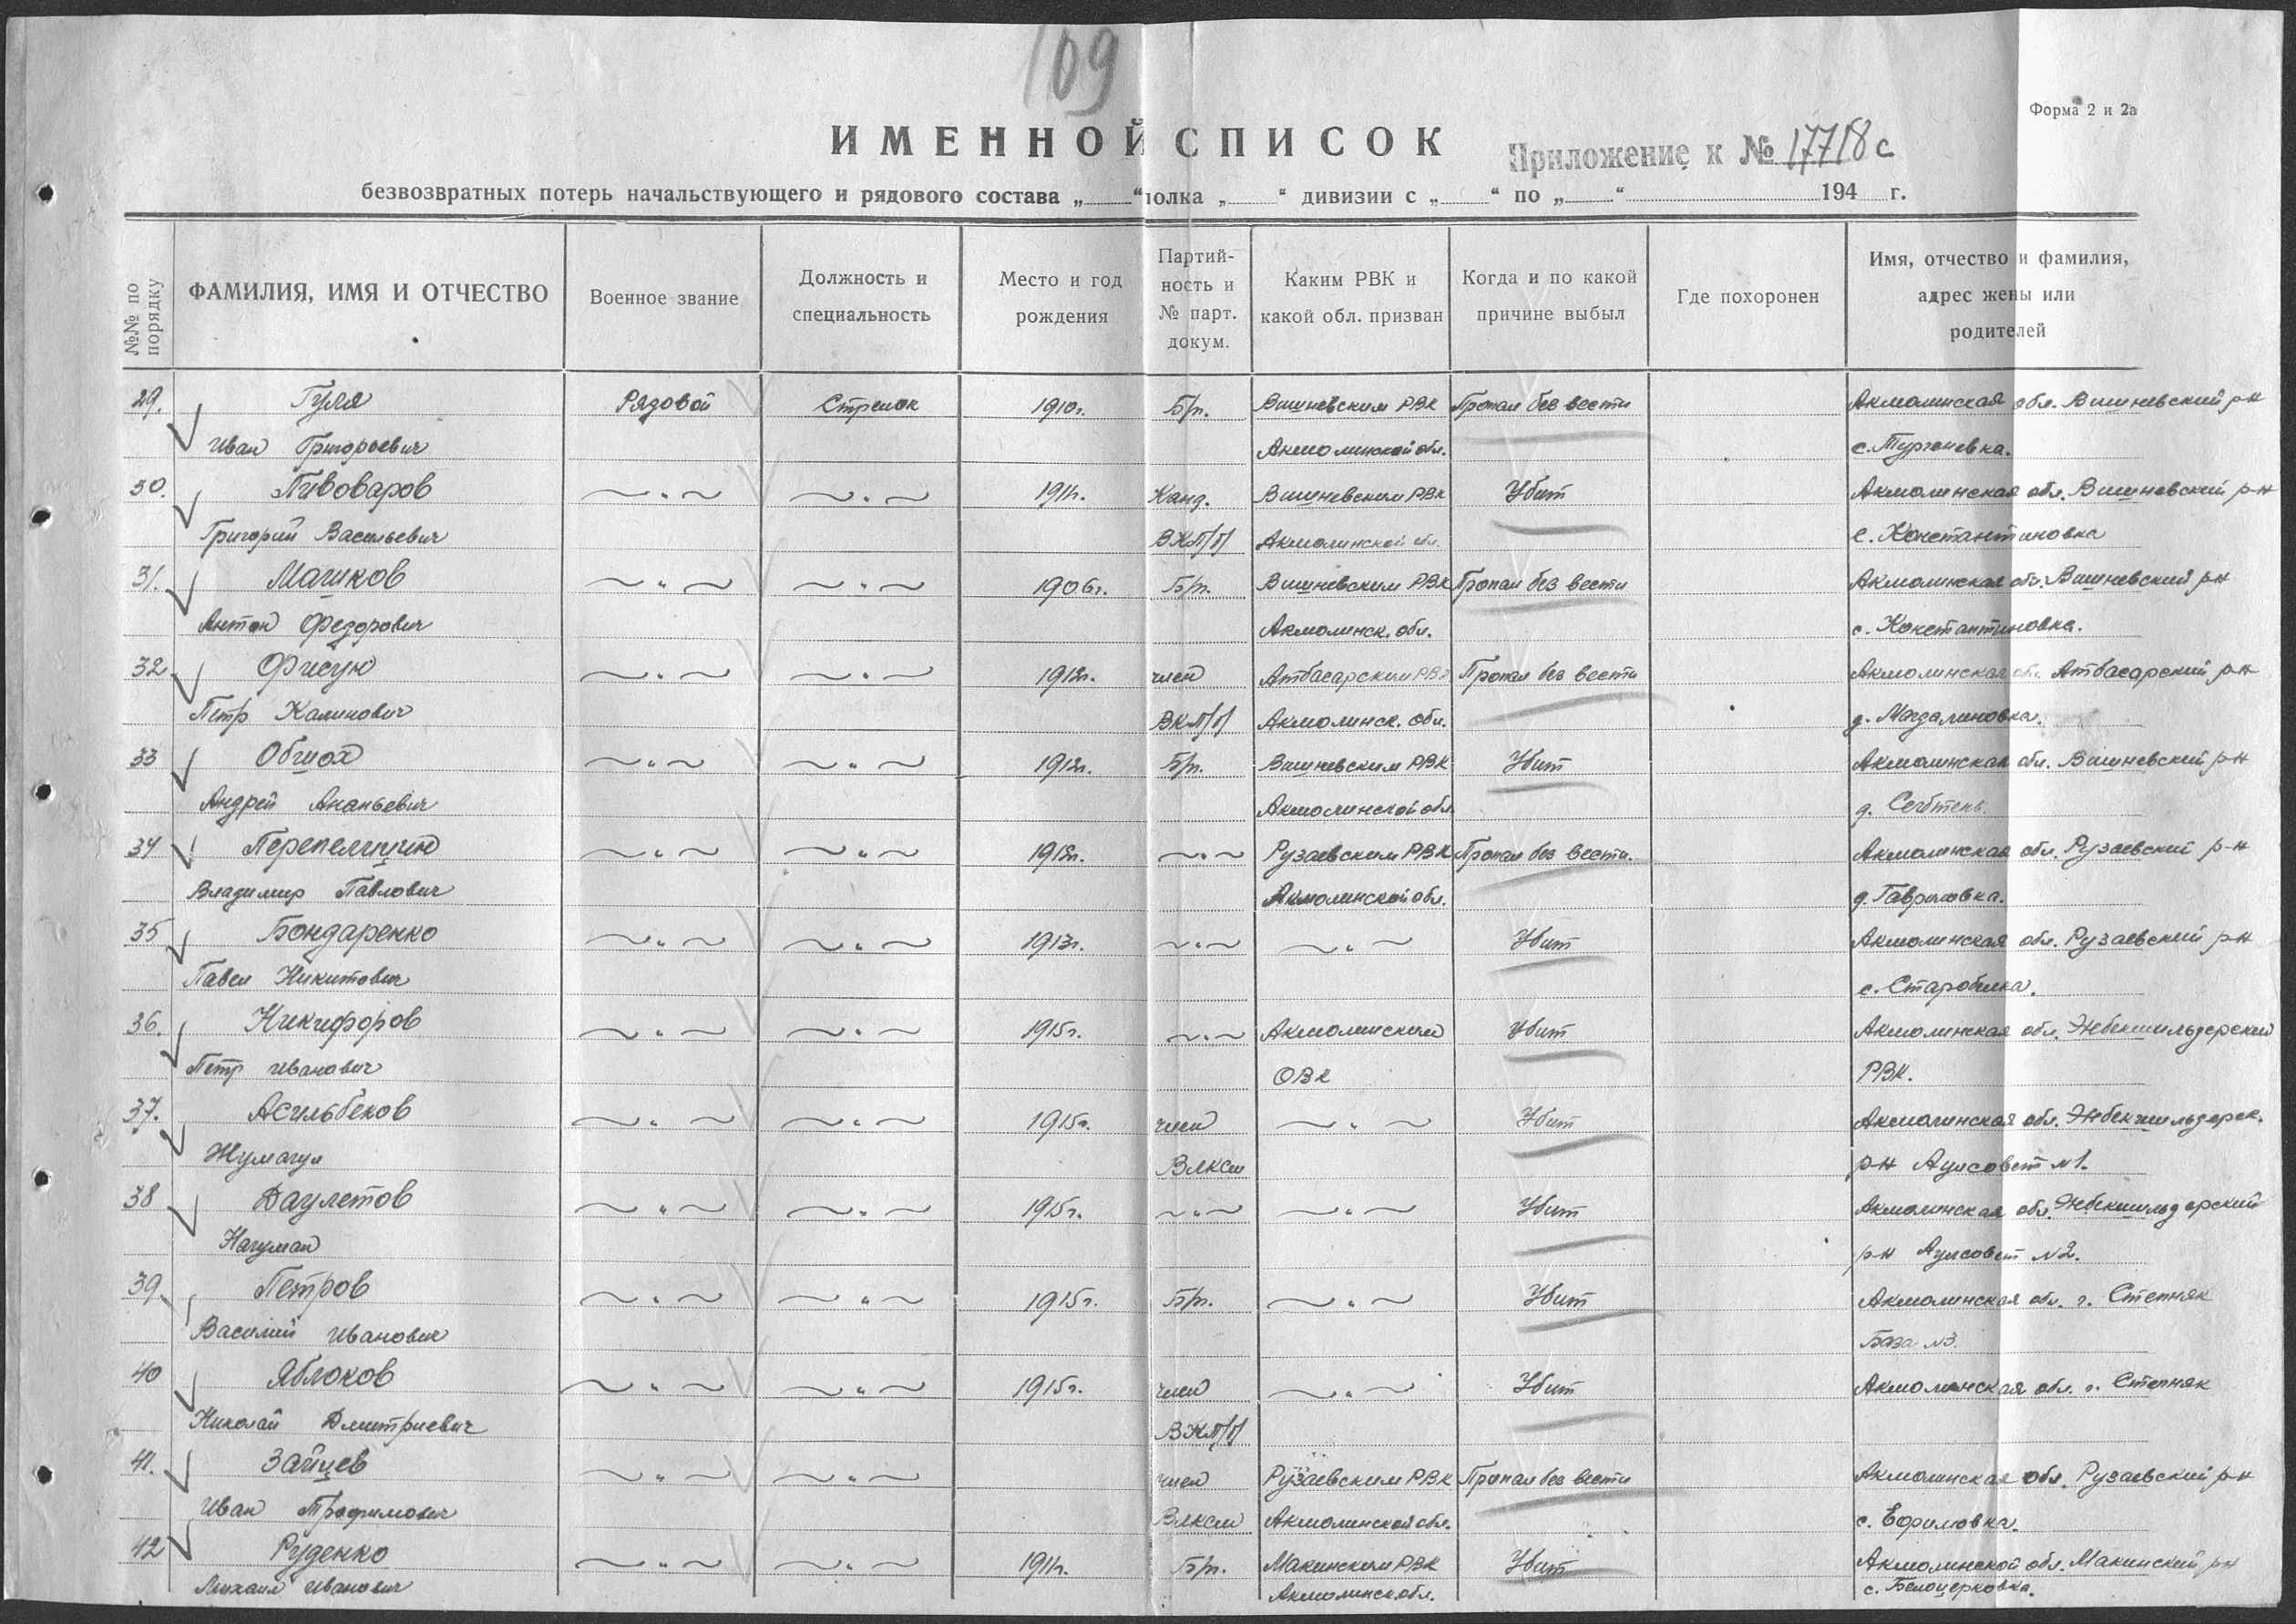 109
Форма 2 и 2а
ИМЕННОЙ СПИСОК
Приложение к № 17718с
безвозвратных потерь начальствующего и рядового состава „ “ полка „ “ дивизии с „ “ по „ “ 194 г.
№№ по порядку
ФАМИЛИЯ, ИМЯ И ОТЧЕСТВО
Военное звание
Должность и специальность
Место и год рождения
Партий-
ность и
№ парт.
докум.
Каким РВК и
какой обл. призван
Когда и по какой
причине выбыл
Где похоронен
Имя, отчество и фамилия,
адрес жены или
родителей
29. Гуля Рядовой Стрелок 1910г. Б/п. Вишневским РВК Пропал без вести Акмолинская обл. Вишневский р-н
Иван Григорьевич Акмолинской обл. с. Тургеневка.
30. Пивоваров —"— —"— 1911г. Канд. Вишневским РВК Убит Акмолинская обл. Вишневский р-н
Григорий Васильевич ВКП/б/ Акмолинской обл. с. Константиновка
31. Машков —"— —"— 1906г. Б/п. Вишневским РВК Пропал без вести Акмолинская обл. Вишневский р-н
Антон Федорович Акмолинск. обл. с. Константиновка.
32 Фисун —"— —"— 1912г. член Атбасарским РВК Пропал без вести Акмолинская обл. Атбасарский р-н
Петр Калинович ВКП/б/ Акмолинск. обл. д. Магдалиновка.
33 —"— —"— 1912г. Б/п. Вишневским РВК Убит Акмолинская обл. Вишневский р-н
Андрей Ананьевич Акмолинской обл. д.
34 Перепелицин —"— —"— —"— Рузаевским РВК Пропал без вести. Акмолинская обл. Рузаевский р-н
Владимир Павлович Акмолинской обл. д. Гавриловка.
35 Бондаренко —"— —"— 1913г. —"— —"— Убит Акмолинская обл. Рузаевский р-н
Павел Никитович с. Старобелка.
36. Никифоров —"— —"— 1915г. —"— Акмолинским Убит Акмолинская обл. Энбекшильдерский
Петр Иванович ОВК РВК.
37. Асильбеков —"— —"— 1915г. член —"— Убит Акмолинская обл. Энбекшильдерск.
Жумагул ВЛКСМ р-н Аулсовет №1.
38 Даулетов —"— —"— 1915г. —"— —"— Убит Акмолинская обл. Энбекшильдерский
Нагуман р-н Аулсовет №2.
39. Петров —"— —"— 1915г. Б/п. —"— Убит Акмолинская обл. г. Степняк
Василий Иванович База №3.
40 Яблоков —"— —"— 1915г. член —"— Убит Акмолинская обл. г. Степняк
Николай Дмитриевич ВКП/б/
41. Зайцев —"— —"— член Рузаевским РВК Пропал без вести Акмолинская обл. Рузаевский р-н
Иван Трофимович ВЛКСМ Акмолинской обл. с. Ефимовка.
42 Руденко —"— —"— 1911г. Б/п. Макинским РВК Убит Акмолинской обл. Макинский р-н
Михаил Иванович Акмолинск. обл. с. Белоцерковка.